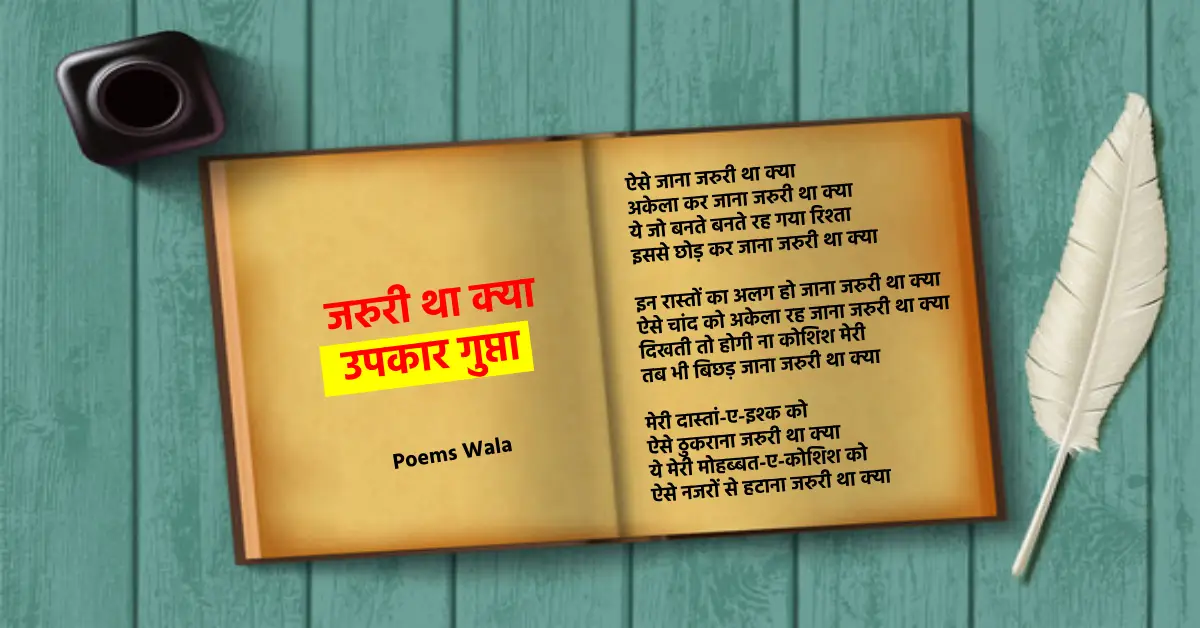 जरुरी था क्या
उपकार गुप्ता
Poems Wala
ऐसे जाना जरुरी था क्या
अकेला कर जाना जरुरी था क्या
ये जो बनते बनते रह गया रिश्ता
इससे छोड़ कर जाना जरुरी था क्या
इन रास्तों का अलग हो जाना जरुरी था क्या
ऐसे चांद को अकेला रह जाना जरुरी था क्या
दिखती तो होगी ना कोशिश मेरी
तब भी बिछड़ जाना जरुरी था क्या
मेरी दास्तां-ए-इश्क को
ऐसे ठुकराना जरुरी था क्या
ये मेरी मोहब्बत-ए-कोशिश को
ऐसे नजरों से हटाना जरुरी था क्या